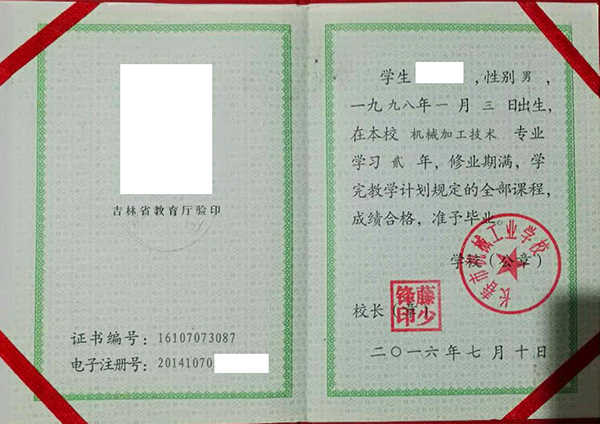 吉林省教育厅验印
证书编号：16107073087
电子注册号：20141070
学生 ，性别 男 ，
一九九八年 一 月 三 日出生，
在本校 机械加工技术 专业
学习 贰 年，修业期满，学
完教学计划规定的全部课程，
成绩合格，准予毕业。
学校（公章）
长春市机械工业学校
校长（章）
滕少锋印
二〇一六年七月十日